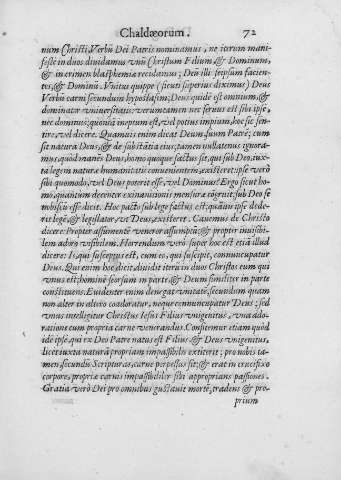 Chaldæorum. 72
num Christi, Verbũ Dei Patris nominamus, ne iterum mani-
festè in duos diuidamus vnũ Christum Filium, & Dominum,
& in crimen blasphemiæ recidamus; Deũ illi seipsum facien-
tes, & Dominũ. Vnitus quippe (sicuti superius diximus) Deus
Verbũ carni secundum hypostasim; Deus quidẽ est omnium, &
dominatur vniuersitatis: verumtamen nec seruus est sibi ipsi,
nec dominus; quoniã ineptum est, vel potius impium, hoc sic sen-
tire, vel dicere. Quamuis enim dicat Deum suum Patrẽ; cum
sit natura Deus, & de substãtia eius; tamen nullatenus ignora-
mus, quòd manẽs Deus, homo quoque factus sit, qui sub Deo, iux-
ta legem naturæ humanitati conuenientem, existeret: ipse verò
sibi quomodo, vel Deus poterit esse, vel Dominus? Ergo sicut ho-
mo, quantum decenter exinanitionis mensuræ cõgruit; sub Deo se
nobiscũ esse dicit. Hoc pacto sub lege factus est; quãuis ipse dede-
rit legẽ, & legislator, vt Deus, existeret. Cauemus de Christo
dicere: Propter assumentẽ veneror assumptũ; & propter inuisibi-
lem adoro visibilem. Horrendum verò super hoc est etiã illud
dicere: Is, qui susceptus est, cum eo, qui suscipit, connuncupatur
Deus. Qui enim hoc dicit, diuidit iterũ in duos Christos eum qui
vnus est; hominẽ seorsum in parte, & Deum similiter in parte
constituens. Euidenter enim denegat vnitatẽ; secundum quam
non alter in altero coadoratur, neque connuncupatur Deus; sed
vnus intelligitur Christus Iesus Filius vnigenitus, vna ado-
ratione cum propria carne venerandus. Confitemur etiam quòd
idẽ ipse, qui ex Deo Patre natus est Filius, & Deus vnigenitus,
licet iuxta naturã propriam impassibilis extiterit; pro nobis ta-
men secundũ Scripturas, carne perpessus sit; & erat in crucifixo
corpore, propriæ carnis impassibiliter sibi approprians passiones.
Gratia verò Dei pro omnibus gustauit mortẽ, tradens & pro-
prium